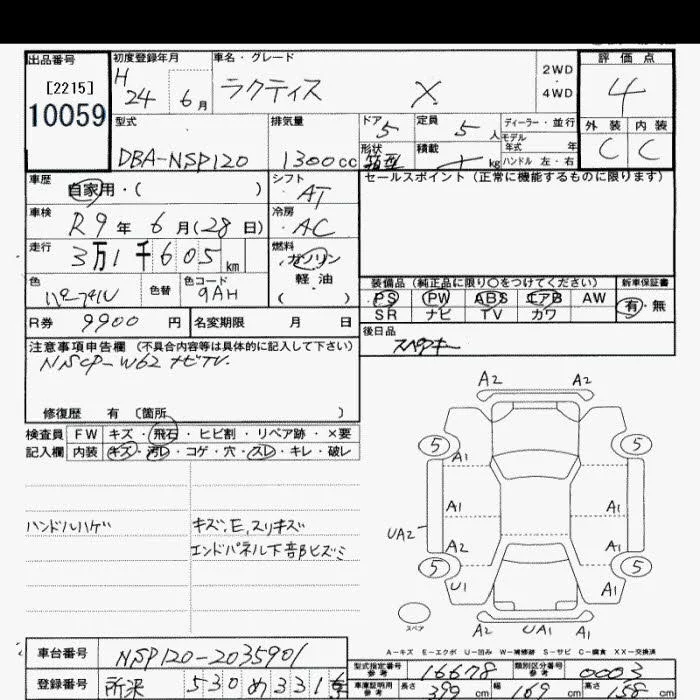 出品番号
[2215]
10059
初度登録年月
H 24 6月
車名・グレード
ラクティス X
2WD
・
4WD
評価点
4
外装 内装
C C
型式
DBA-NSP120
排気量
1300cc
ドア 5
形状 箱型
定員 5人
積載 kg
ディーラー・並行
モデル年式 年
ハンドル 左・右
車歴
自家用・( )
シフト
AT
セールスポイント(正常に機能するものに限ります)
車検
R9年 6月(28日)
冷房
AC
走行
3万1千605km
燃料
ガソリン
軽油
( )
色
色替
色コード
9AH
装備品(純正品に限り○をつけてください)
新車保証書
PS PW ABS エアB AW
SR ナビ TV カワ
有・無
R券 9900円
名変期限 月 日
後日品
スペアキー
注意事項申告欄(不具合内容等は具体的に記入して下さい)
NSCP-W62 ナビTV.
修復歴 有 〔箇所 〕
検査員記入欄
FW キズ・飛石・ヒビ割・リペア跡・×要
内装 キズ・汚レ・コゲ・穴・スレ・キレ・破レ
ハンドルハゲ
キズ、E、スリキズ
エンドパネル下部ヒズミ
A2 A2
5 5
A1
A1 A1
UA2
A2 A1
5 5
U1 A1
A2 UA1 A1
スペア
A-キズ E-エクボ U-凹み W-補修跡 S-サビ C-腐食 XX-交換済
車台番号
NSP120-2035901
型式指定番号
参考
16678
類別区分番号
参考
0003
登録番号
所沢 530 め 331
車庫証明用
参考
長さ 399 cm
幅 169 cm
高さ 158 cm